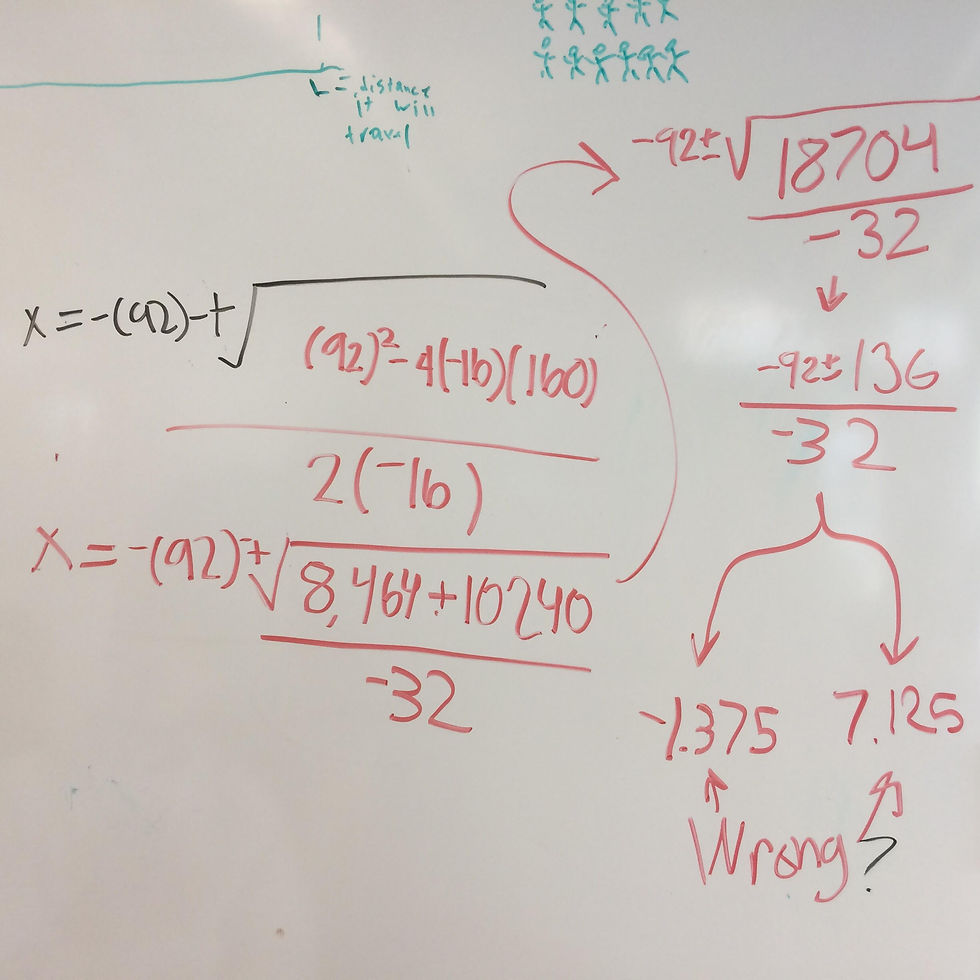 L = distance
it will
travel
x = -(92) -+ √
(92)² - 4(-16)(160)
2(-16)
X = -(92) -+ √8,464 + 10240
-32
-92 ± √18704
-32
-92 ± 136
-32
-1.375 7.125
Wrong ?